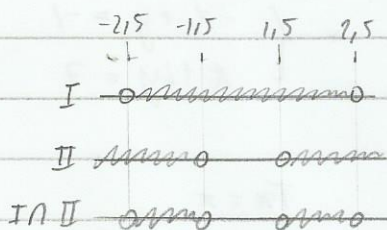 -2,5 -1,5 1,5 2,5
I
II
I ∩ II